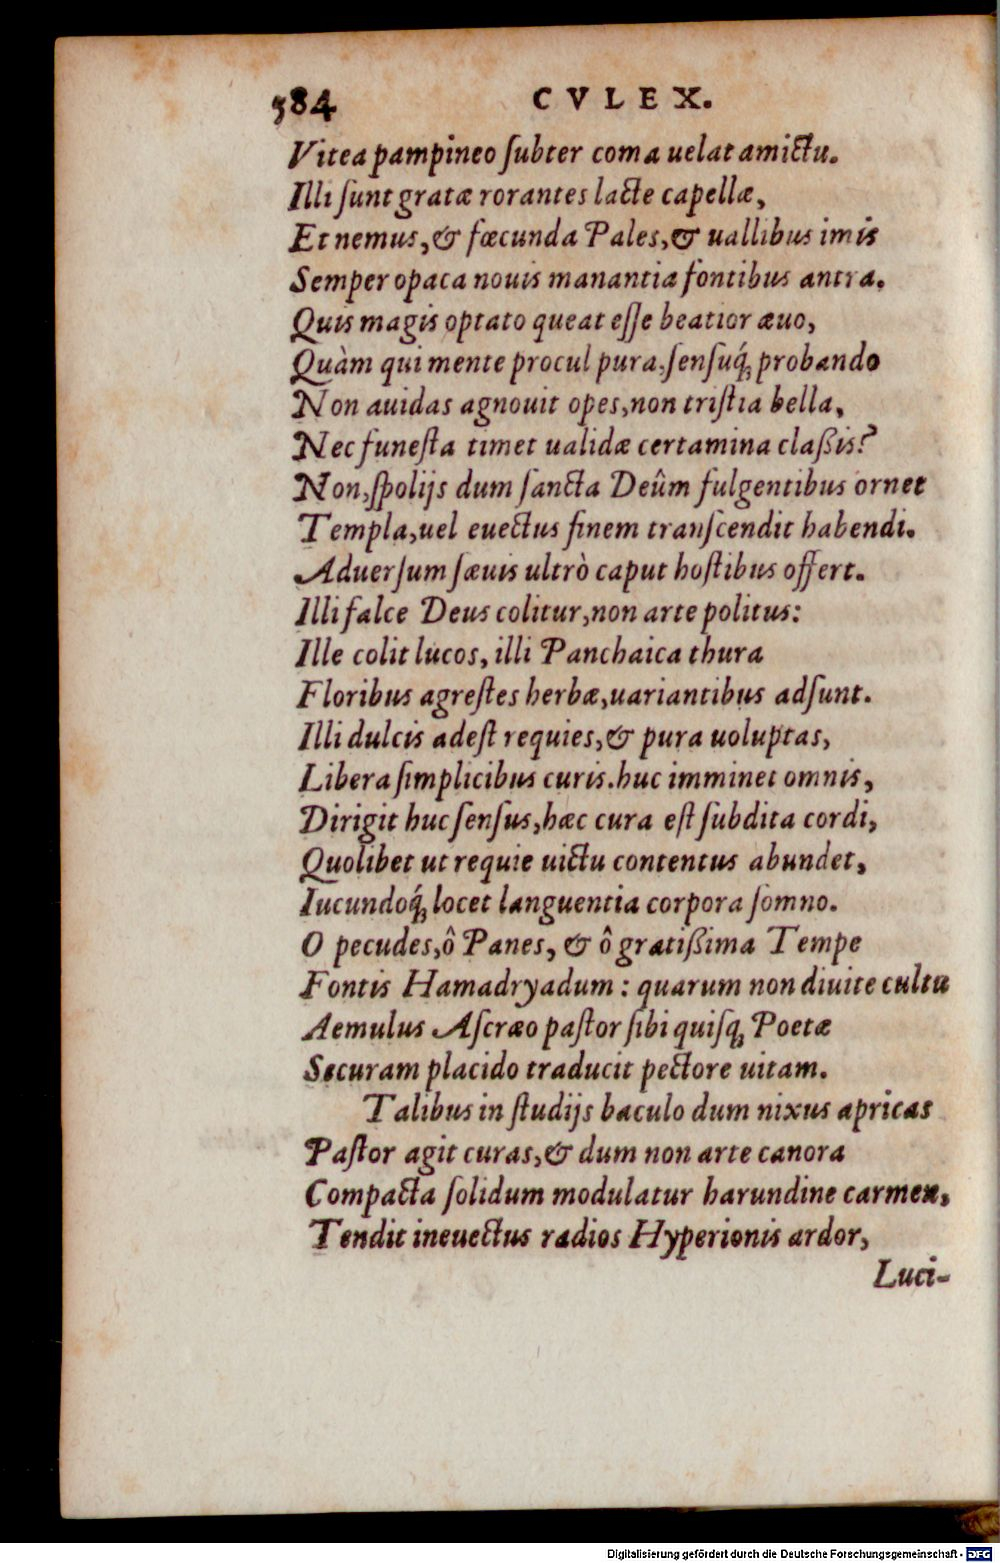 584 CVLEX.
Vitea pampineo ſubter coma uelat amictu.
Illi ſunt gratæ rorantes lacte capellæ,
Et nemus, & fœcunda Pales, & uallibus imis
Semper opaca nouis manantia fontibus antra.
Quis magis optato queat eſſe beatior æuo,
Quàm qui mente procul pura, ſenſuq́; probando
Non auidas agnouit opes, non triſtia bella,
Nec funeſta timet ualidæ certamina claßis?
Non, ſpolijs dum ſancta Deûm fulgentibus ornet
Templa, uel euectus finem tranſcendit habendi.
Aduerſum ſæuis ultrò caput hoſtibus offert.
Illi falce Deus colitur, non arte politus:
Ille colit lucos, illi Panchaica thura
Floribus agreſtes herbæ, uariantibus adſunt.
Illi dulcis adeſt requies, & pura uoluptas,
Libera ſimplicibus curis. huc imminet omnis,
Dirigit huc ſenſus, hæc cura eſt ſubdita cordi,
Quolibet ut requie uictu contentus abundet,
Iucundoq́; locet languentia corpora ſomno.
O pecudes, ô Panes, & ô gratißima Tempe
Fontis Hamadryadum: quarum non diuite cultu
Aemulus Aſcræo paſtor ſibi quiſq; Poetæ
Securam placido traducit pectore uitam.
Talibus in ſtudijs baculo dum nixus apricas
Paſtor agit curas, & dum non arte canora
Compacta ſolidum modulatur harundine carmen,
Tendit ineuectus radios Hyperionis ardor,
Luci-
Digitalisierung gefördert durch die Deutsche Forschungsgemeinschaft - DFG